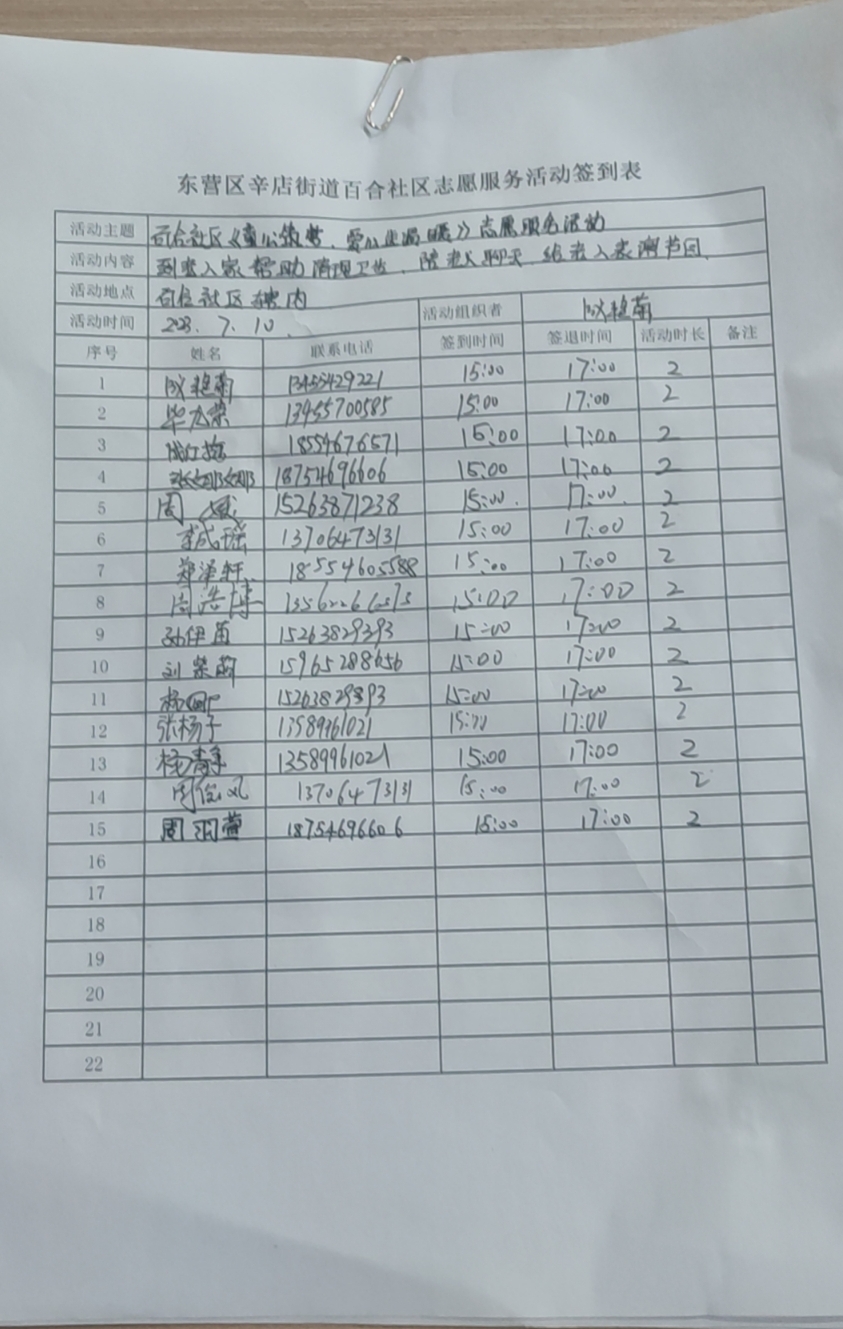 东营区辛店街道百合社区志愿服务活动签到表
活动主题 百合社区《童心筑梦、爱心送温暖》志愿服务活动
活动内容 到老人家帮助清理卫生、陪老人聊天、给老人表演节目
活动地点 百合社区辖内
活动时间 2023.7.10 活动组织者
序号 姓名 联系电话 签到时间 签退时间 活动时长 备注
1 13455429221 15:00 17:00 2
2 13455700585 15:00 17:00 2
3 18554676571 15:00 17:00 2
4 张娜娜 18754696606 15:00 17:00 2
5 周 15263871238 15:00 17:00 2
6 李成瑶 13706473131 15:00 17:00 2
7 郑泽轩 18554605588 15:00 17:00 2
8 周浩博 15:00 17:00 2
9 孙伊 15263829393 15:00 17:00 2
10 刘 15965288656 15:00 17:00 2
11 杨 15263829393 15:00 17:00 2
12 张杨子 13589961021 15:00 17:00 2
13 杨静 13589961021 15:00 17:00 2
14 周 13706473131 15:00 17:00 2
15 周羽萱 18754696606 15:00 17:00 2
16
17
18
19
20
21
22